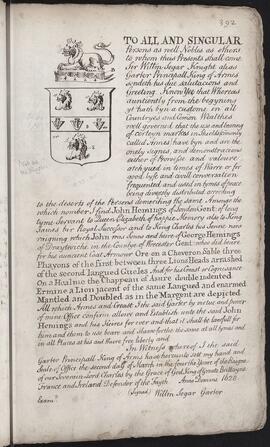 392
TO ALL AND SINGULAR
Persons as well Nobles as others
to whom this Presents shall come
Sir Willm Segar Knight alias
Garter Principall King of Armes
sendeth his due salutacions and
Greeting Know Yee that Whereas
aunciently from the begynning
yt hath byn a Custome in all
Countryes and Comon Wealthes
well governed that the use and bearing
of certeyn markes in Sheilds (vsually
called Armes) have byn and are the
onely signes, and demonstracons
either of Prowesse and valoure
atchyved in times of Warre or for
good lyfe and civill conversation
frequented and used in tymes of peace
being diversly distributed according
to the deserts of the Persons demeriting the same. Amongst the
which number, I find John Hemings of London Gent: of long
tyme Servant to Queen Elizabeth of happie Memory, also to King
James hir Royal Successor and to King Charles his Sonne now
raigning which John was Sonne and heire of George Hemings
of Draytwiche, in the Countye of Worcester Gent: who did beare
for his auncient Coat Armour Ore on a Cheveron Sable three
Phayons of the first betweene three Lions Heads rased
of the second langued Gueles And for his Creast or Cognisance
On a Healme the Chappeau of Azure double indented
Ermine a Lion jacent of the same Langued and enarmed
Mantled and Doubled as in the Margent are depicted
All which Armes and Creast I the said Garter by vertue and power
of mine Office confirm alleowe and Establish unto the said John
Hemings and his Yssue for ever and that it shall be lawfull for
him and them to use beare and shewe forthe the same at all tymes and
in all Places at his and theire free liberty and
In Witness whereof I the said
Garter Principall King of Armes have hereunto sett my hand and
Seale of Office the second day of March in the fourth Yeare of the Raigne
of our Soveraign Lord Charles by the Grace of God King of Great Brittayne
France and Ireland Defender of the Fayth Anno Domini 1628.
Exam.d
Signed Willm Segar Garter